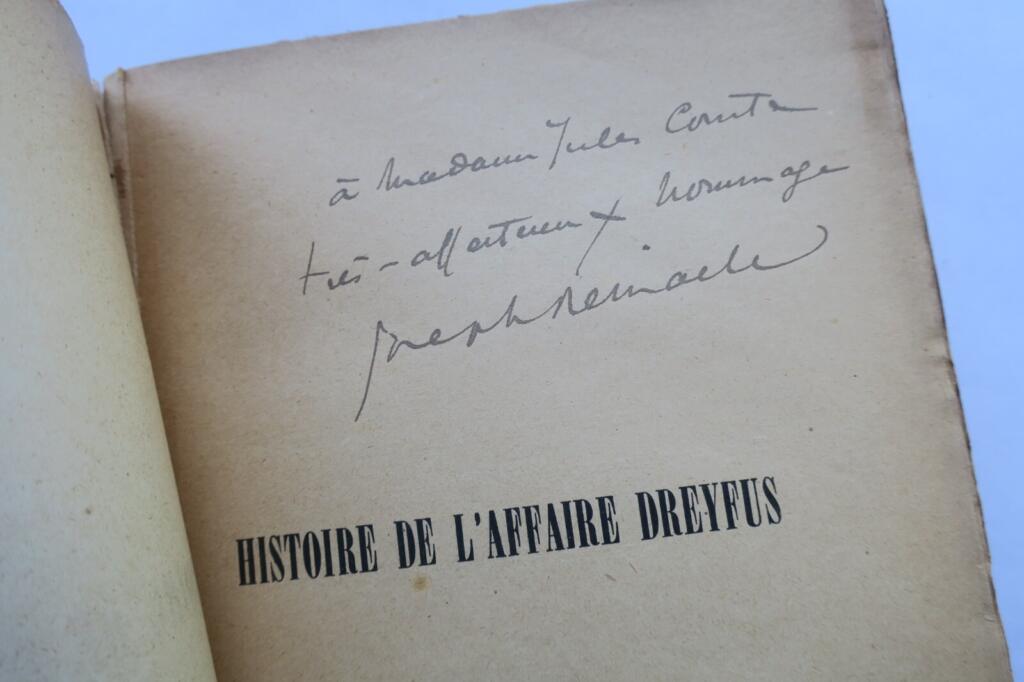 à Madame Jules Comte
très-affectueux hommage
Joseph Reinach
HISTOIRE DE L'AFFAIRE DREYFUS